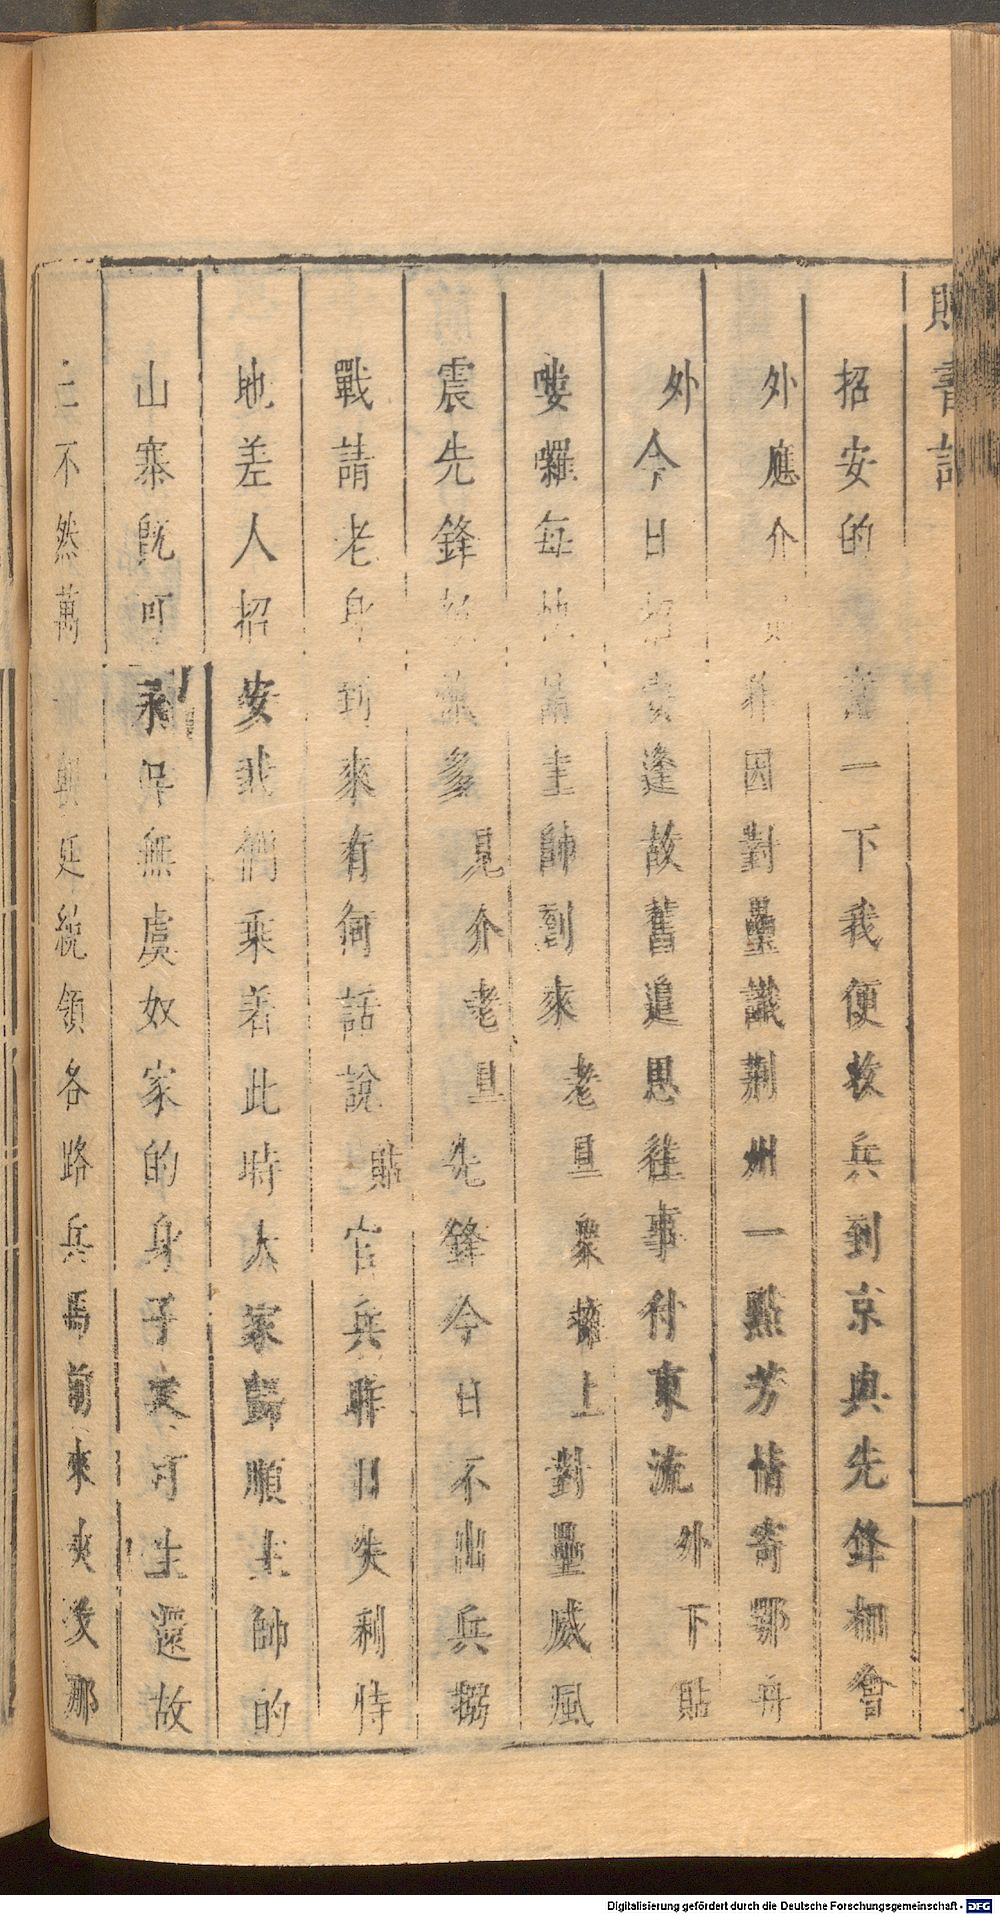 書記
招安的意一下我便收兵到京與先鋒相會
外應介因對壘識荆州一㸃芳情寄鄂舟
外今日招安逢故舊追思往事付東流外下貼
嘍囉每快請主帥到來老旦衆擁上對壘威風
震先鋒好氣多見介老旦先鋒今日不出兵搦
戰請老身到來有何話說貼官兵昨日失利特
地差人招安我們乘着此時大家歸順主帥的
山寨既可永保無虞奴家的身子又可生還故
土不然萬一朝廷統領各路兵馬前來夾攻那
Digitalisierung gefördert durch die Deutsche Forschungsgemeinschaft - DFG